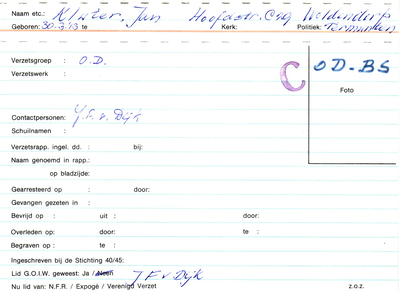 Naam etc.: Kluter, Jan Hoofdstr. C89 Woldendorp
Geboren: 30-3-'13 te Kerk: Politiek: Termunten
Verzetsgroep : O.D.
Verzetswerk :
C
OD-BS
Foto
Contactpersonen: J.F. v. Dijk
Schuilnamen :
Verzetsrapp. ingel. dd. : bij:
Naam genoemd in rapp.:
op bladzijde:
Gearresteerd op : door:
Gevangen gezeten in :
Bevrijd op : uit : door:
Overleden op: door: te :
Begraven op : te :
Ingeschreven bij de Stichting 40/45:
Lid G.O.I.W. geweest: Ja / Neen J F v Dijk
Nu lid van: N.F.R. / Expogé / Verenigd Verzet z.o.z.